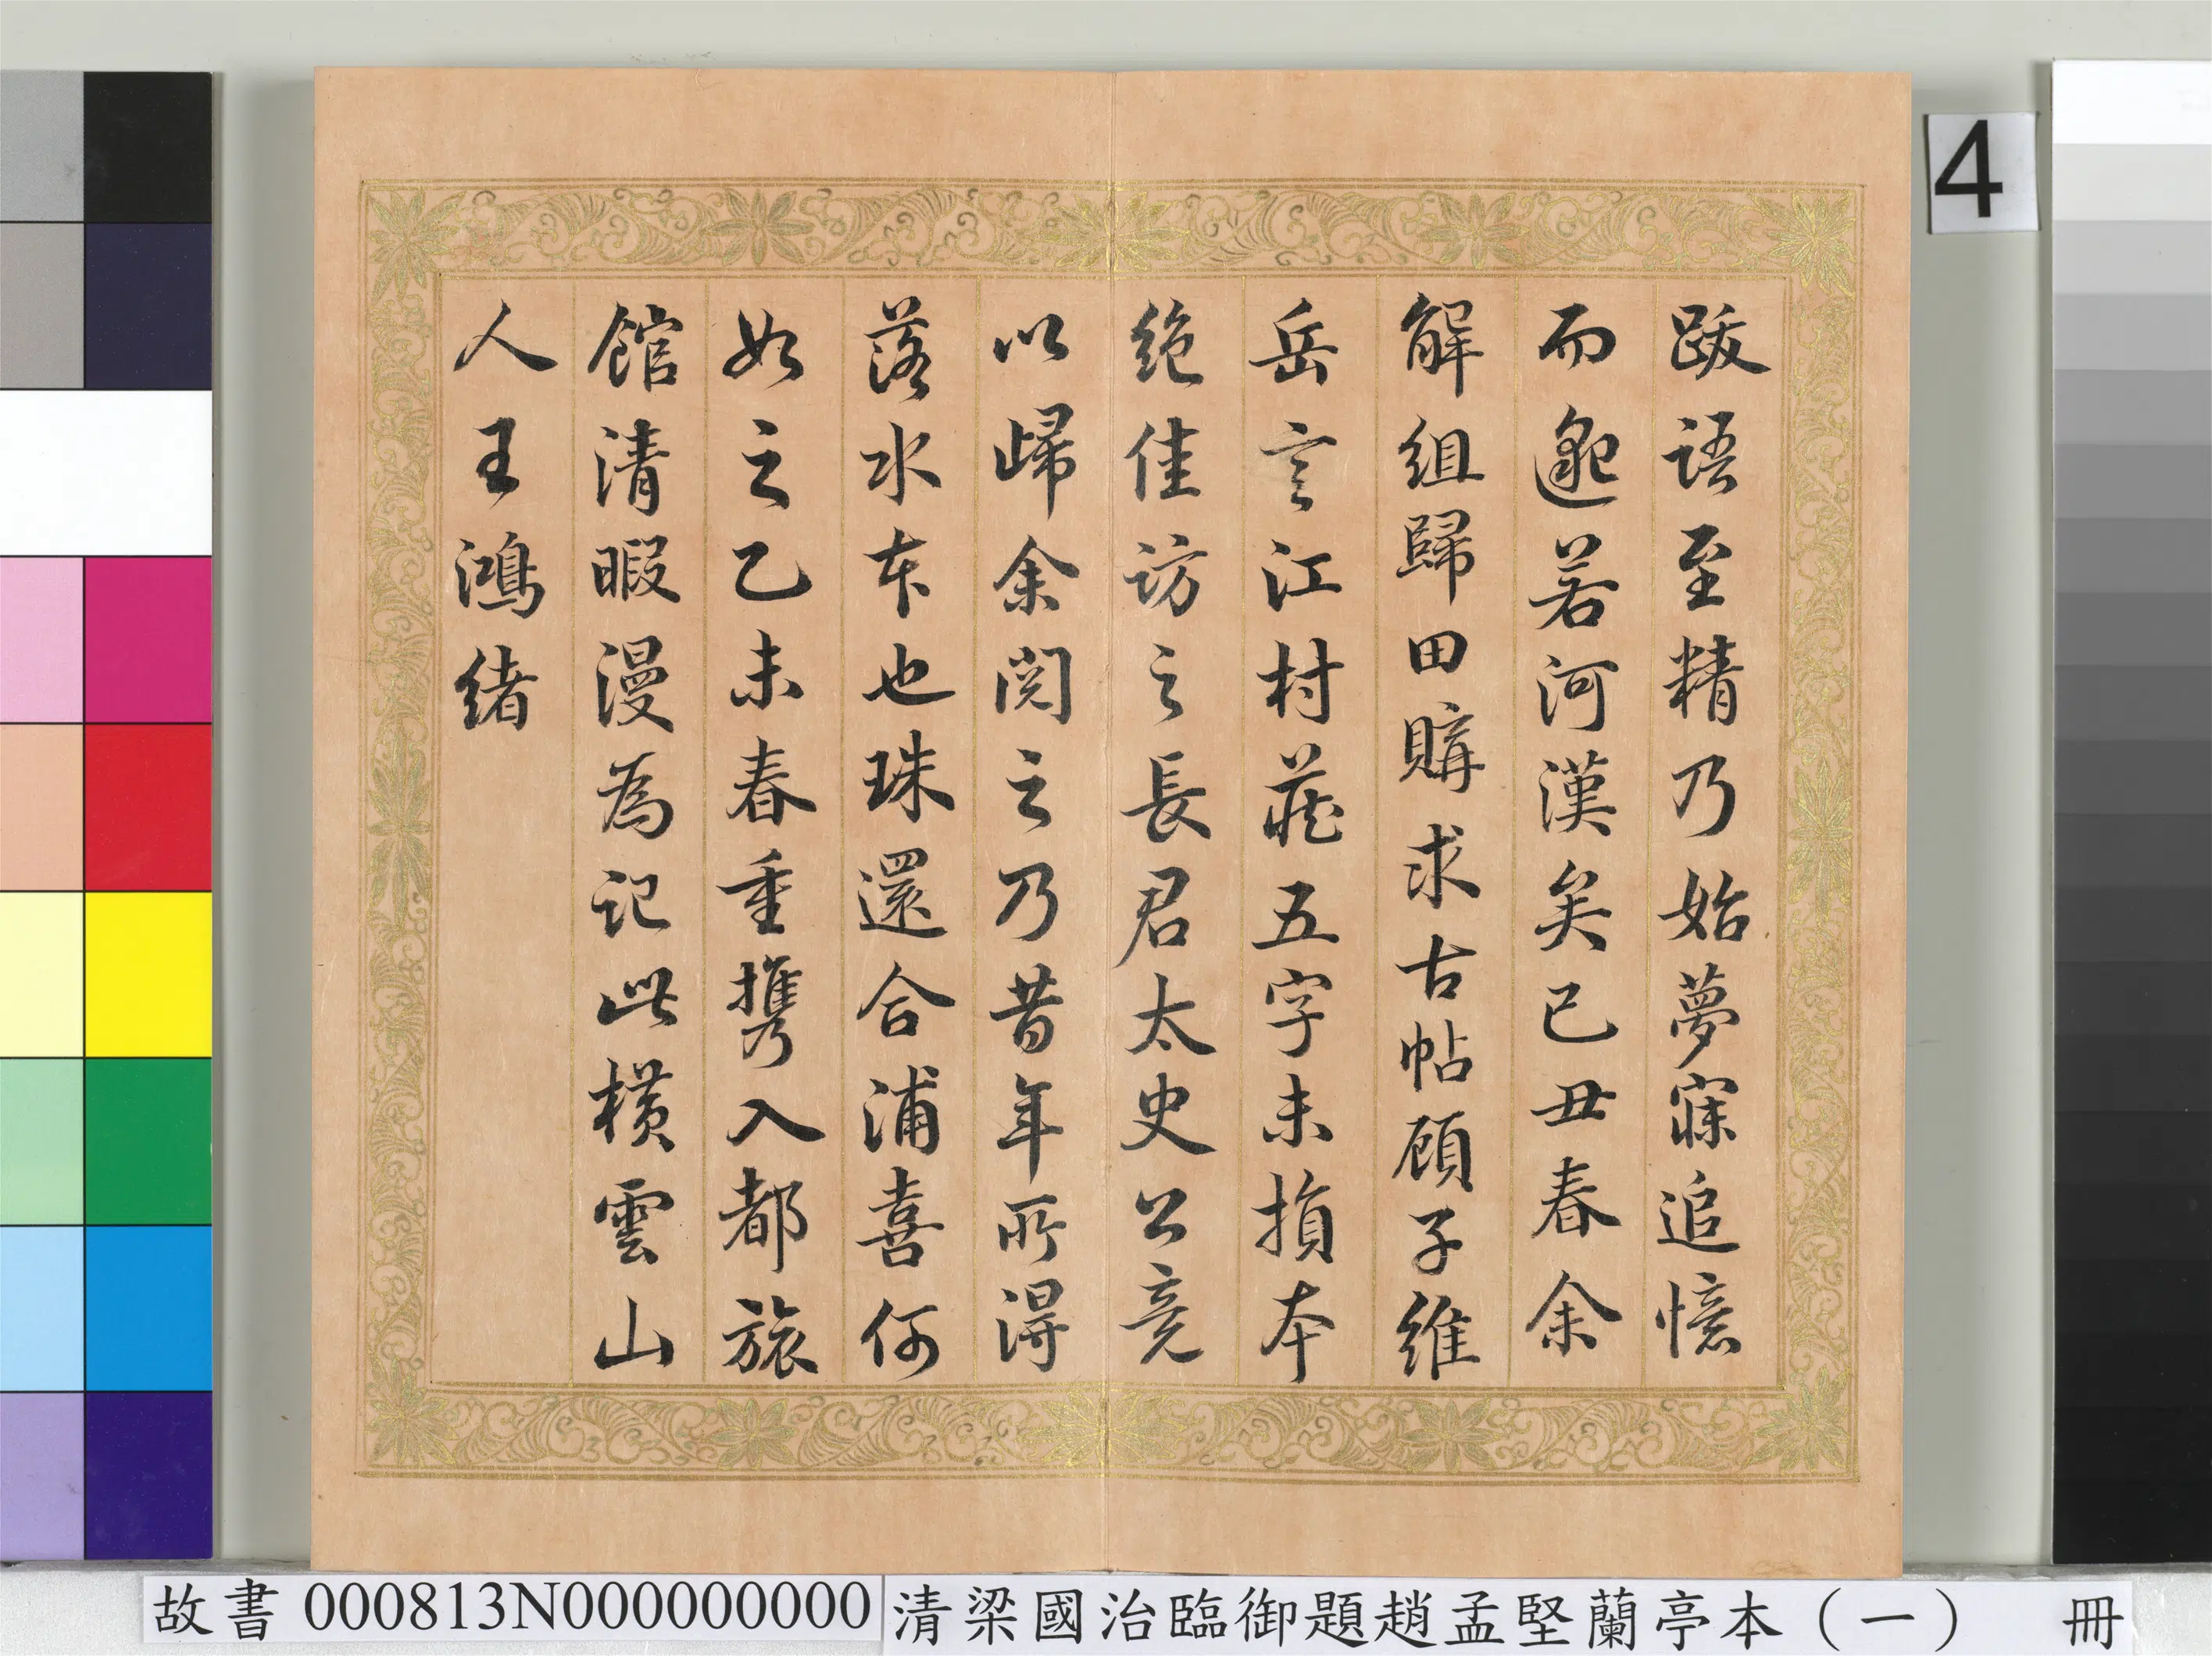 跋語至精乃始夢寐追憶
而邈若河漢矣已丑春余
解組歸田購求古帖顧子維
岳言江村藏五字未損本
絶佳訪之長君太史公竟
以歸余閱之乃昔年所得
落水本也珠還合浦喜何
如之乙未春重携入都旅
館清暇漫為記此橫雲山
人王鴻緒
4
故書 000813N000000000 清梁國治臨御題趙孟堅蘭亭本（一） 冊